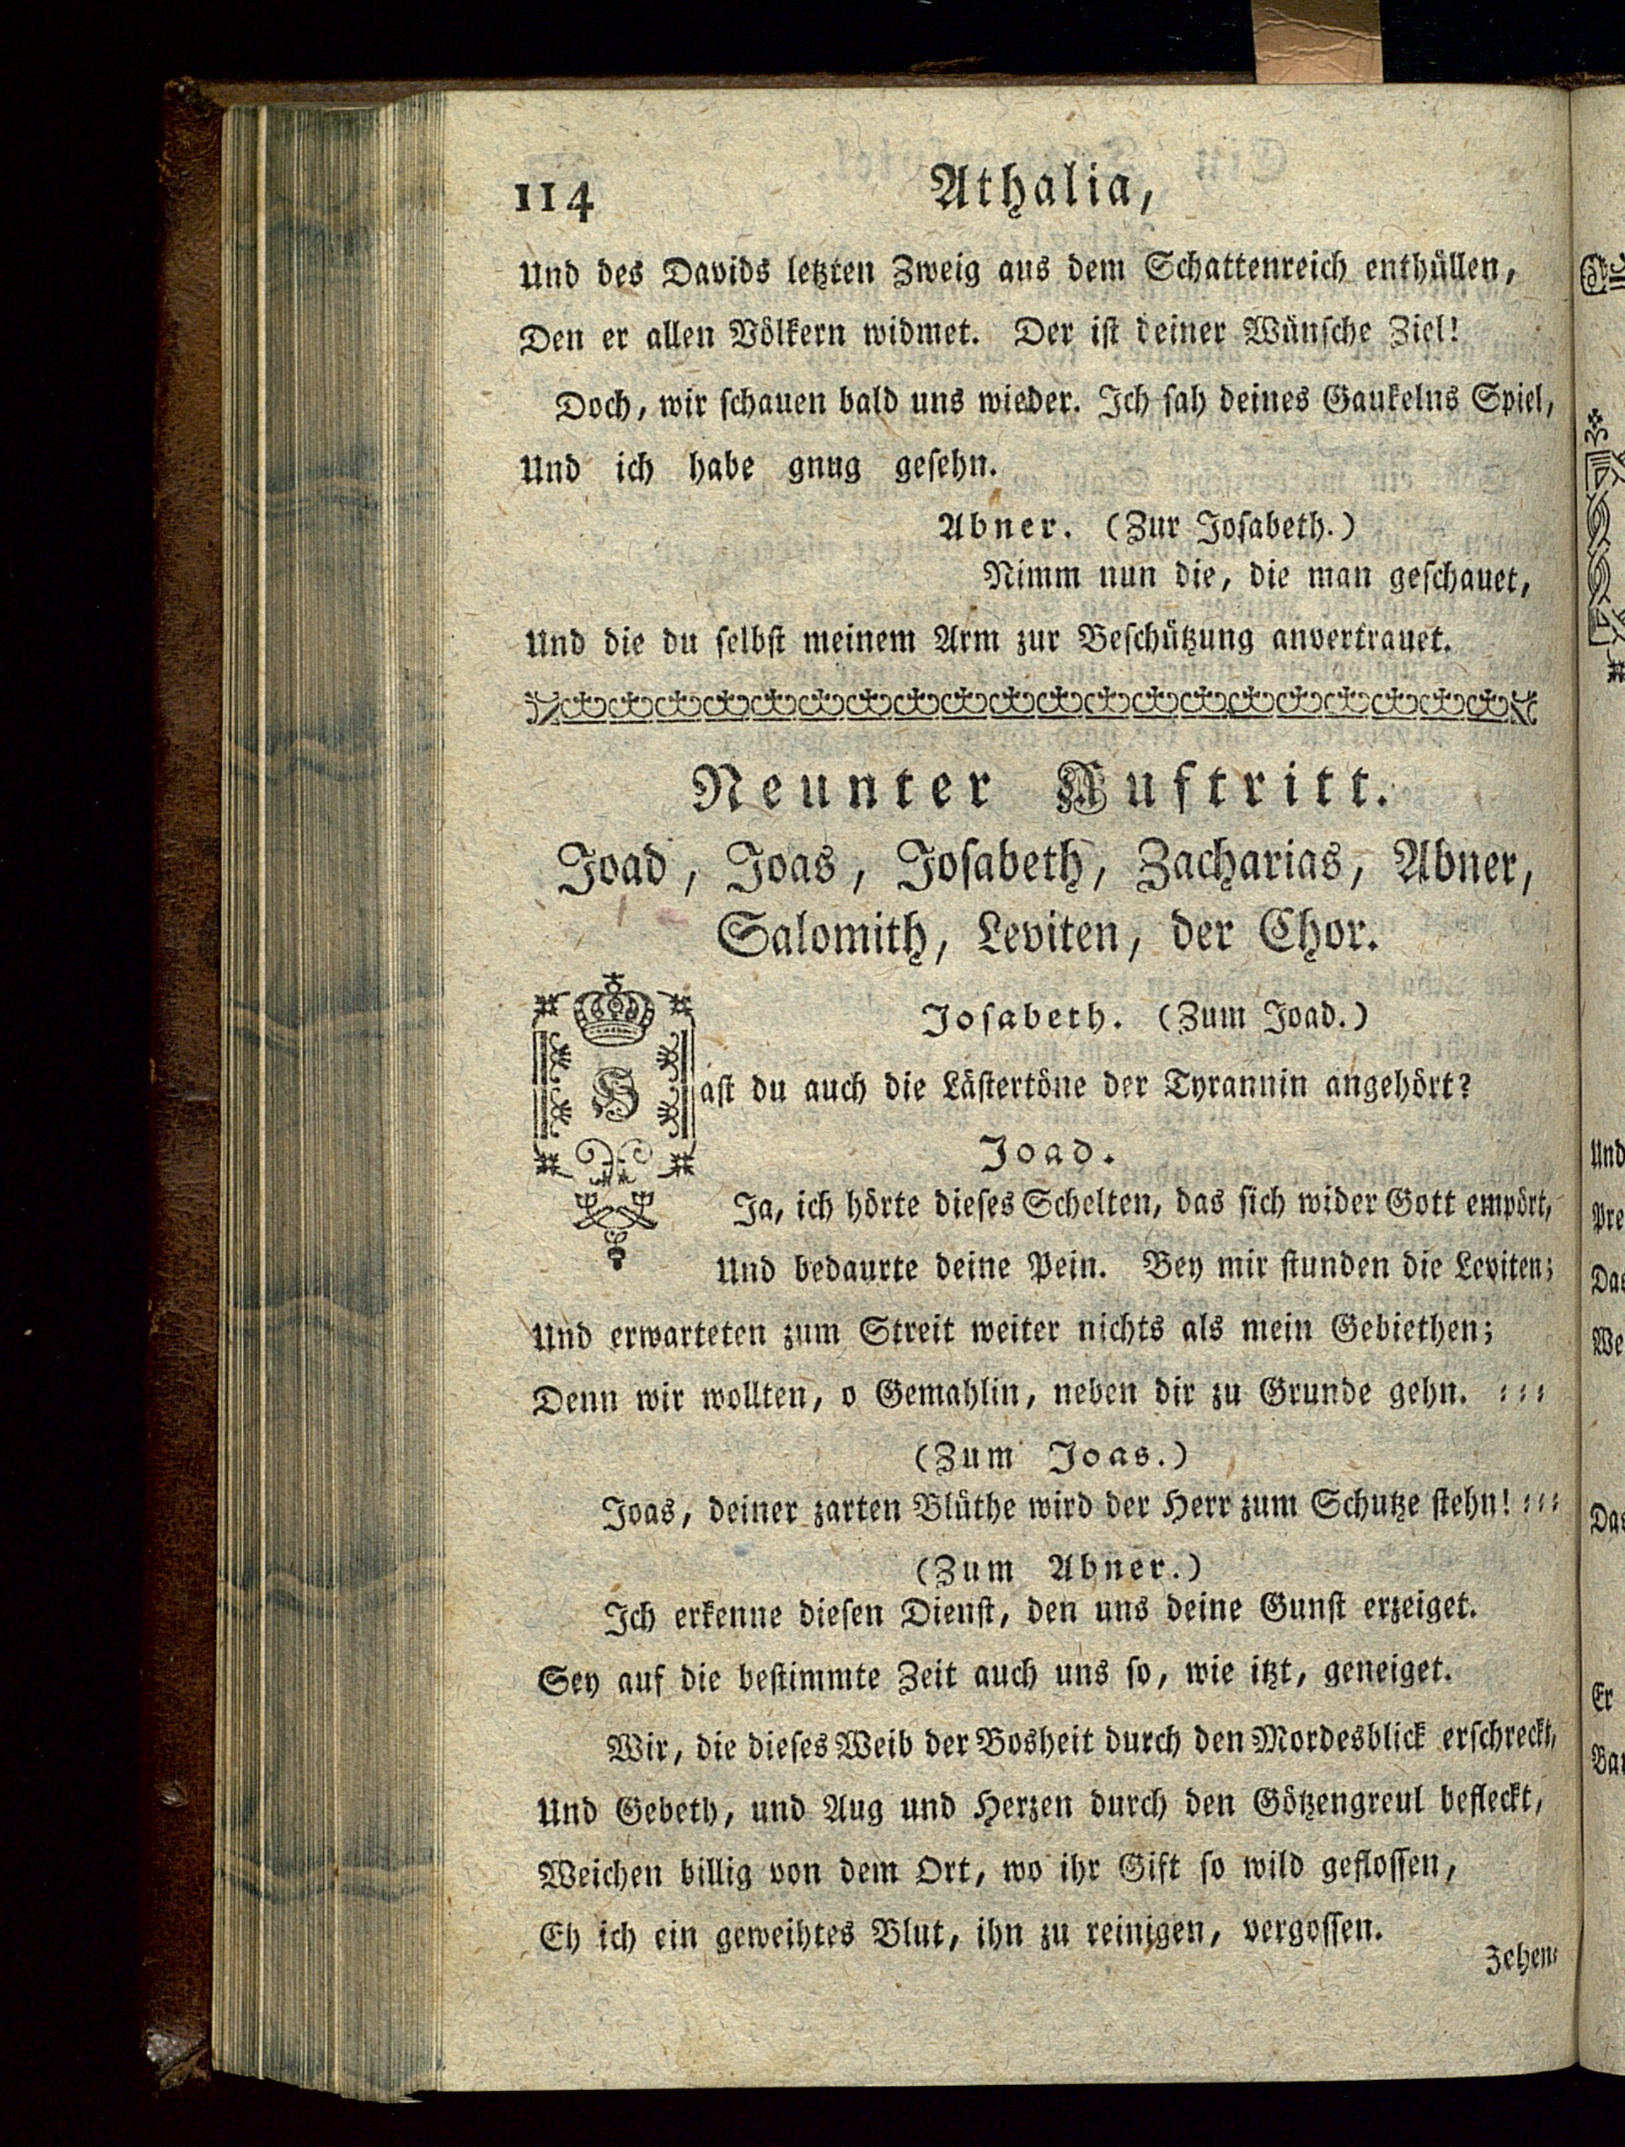 114 Athalia,
Und des Davids letzten Zweig aus dem Schattenreich enthüllen,
Den er allen Völkern widmet. Der ist deiner Wünsche Ziel!
Doch, wir schauen bald uns wieder. Ich sah deines Gaukelns Spiel,
Und ich habe gnug gesehn.
Abner. (Zur Josabeth.)
Nimm nun die, die man geschauet,
Und die du selbst meinem Arm zur Beschützung anvertrauet.
Neunter Auftritt.
Joad, Joas, Josabeth, Zacharias, Abner,
Salomith, Leviten, der Chor.
Josabeth. (Zum Joad.)
Hast du auch die Lästertöne der Tyrannin angehört?
Joad.
Ja, ich hörte dieses Schelten, das sich wider Gott empört,
Und bedaurte deine Pein. Bey mir stunden die Leviten;
Und erwarteten zum Streit weiter nichts als mein Gebiethen;
Denn wir wollten, o Gemahlin, neben dir zu Grunde gehn. ⸗⸗⸗
(Zum Joas.)
Joas, deiner zarten Blüthe wird der Herr zum Schutze stehn! ⸗⸗⸗
(Zum Abner.)
Ich erkenne diesen Dienst, den uns deine Gunst erzeiget.
Sey auf die bestimmte Zeit auch uns so, wie itzt, geneiget.
Wir, die dieses Weib der Bosheit durch den Mordesblick erschreckt,
Und Gebeth, und Aug und Herzen durch den Götzengreul befleckt,
Weichen billig von dem Ort, wo ihr Gift so wild geflossen,
Eh ich ein geweihtes Blut, ihn zu reinigen, vergossen.
Zehen⸗
Und
Pre
Das
We
Das
Er